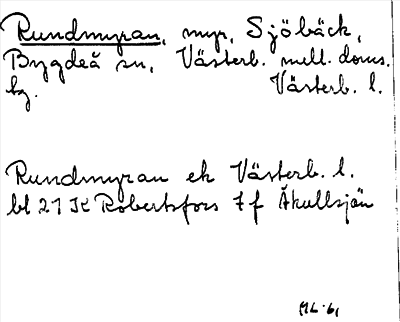 Rundmyran, myr, Sjöbäck,
Bygdeå sn, Västerb. mell. doms.
hg. Västerb. l.
Rundmyran ek Västerb. l.
bl 21 K Robertsfors 7 f Åkullsjön
ML-61